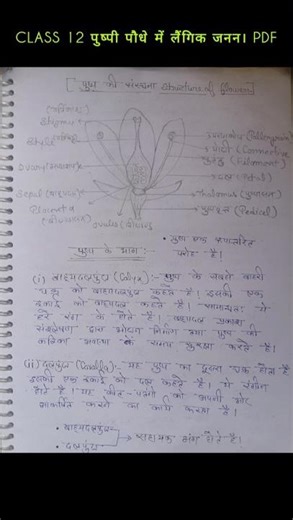 CLASS 12 पुष्पी पौधे में लैंगिक जनन। PDF
[ पुष्प की संरचना Structure of flower ]
Stigma
Style
Ovary (अण्डाशय)
Sepal (बाह्यदल)
Placenta
Ovules
(Connective
Filament)
दल (Petal)
Thalamus (पुष्पासन)
पुष्पवृन्त (Pedicel)
पुष्प के भाग :-
• पुष्प एक रूपांतरित
प्ररोह है।
(i) बाह्यदलपुंज (Calyx) :- पुष्प के सबसे बाहरी
चक्र को बाह्यदलपुंज कहते हैं। इसकी एक
इकाई को बाह्यदल कहते हैं।
हरे रंग के होते हैं। बाह्यदल
संश्लेषण द्वारा भोजन निर्माण तथा पुष्प की
कलिका अवस्था के समय सुरक्षा करते हैं।
(ii) दलपुंज (Corolla) :- यह पुष्प का दूसरा चक्र होता है
इसकी एक इकाई को दल कहते हैं। ये रंगीन
होते हैं। यह कीट-पतंगों को अपनी ओर
आकर्षित करने का कार्य करता है।
• बाह्यदलपुंज
• दलपुंज
→ सहायक अंग होते हैं।